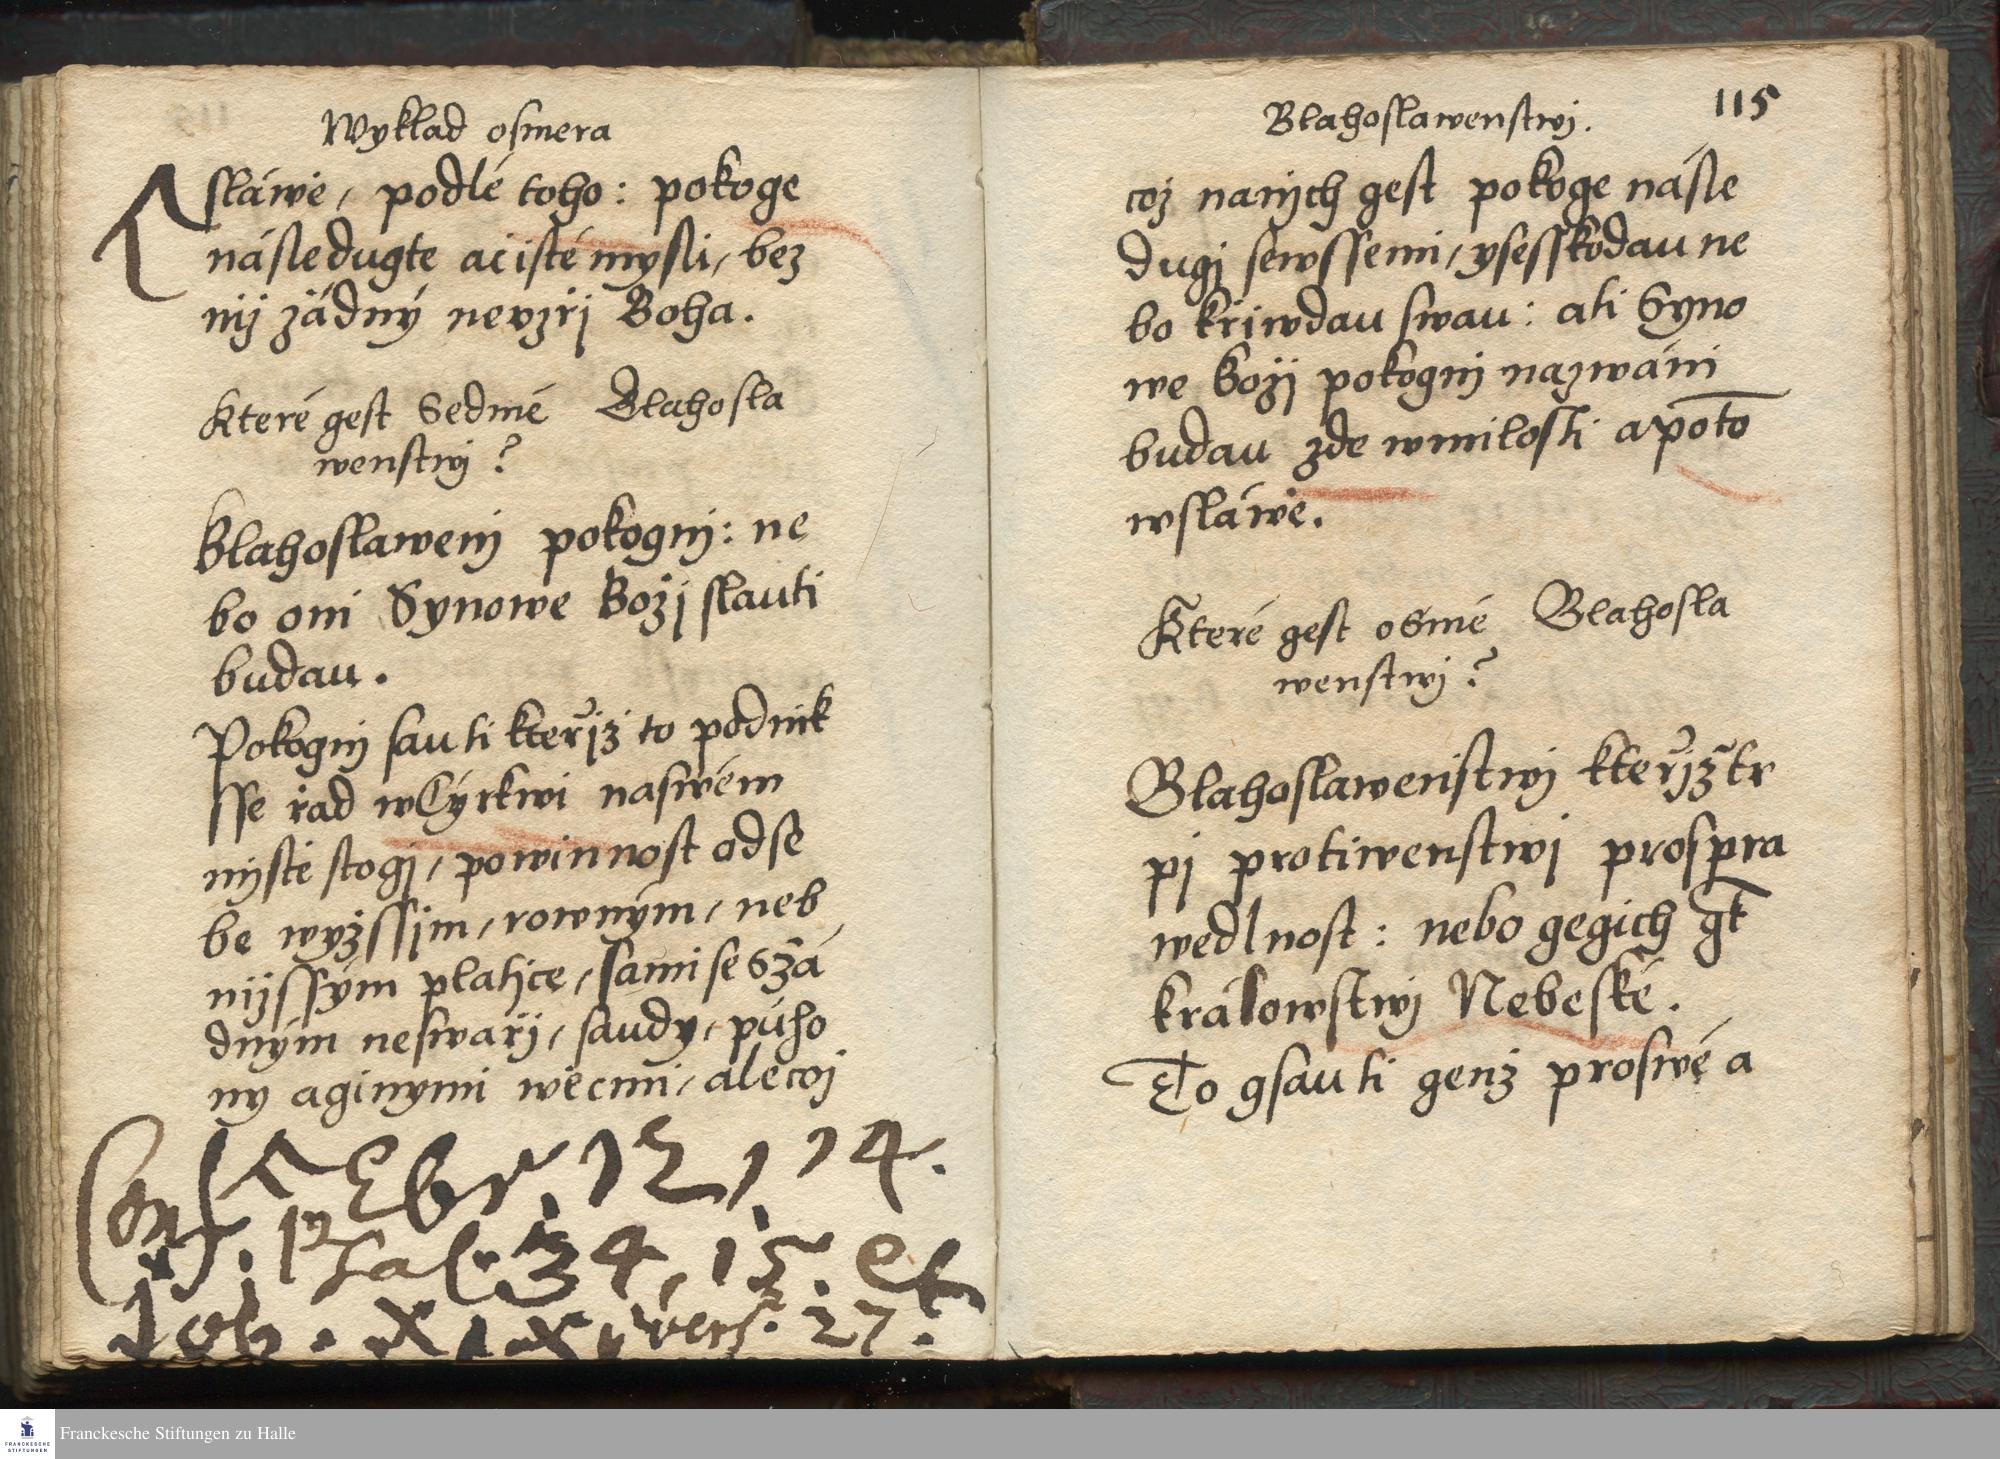 Wykład osmera
sławě, podlé toho: pokoge
následugte ačisté mysli, bez
nij žádný nevzřj Boha.
Které gest Sedmé Blahosła
wenstwj?
Blahosławenj pokognj: ne
bo oni Synowé Božj slauti
budau.
Pokognj sau ti kteřjž to podnik
sse řád wCýrkwi naswém
mjstě stogj, powinnost odse
be wyžssjm, rowným, neb
nijssým platjce, sami se Sžá
dným neswařj, saudy, půho
ny aginymi wěcmi, alecoj
Conf. Ebr. 12, 14.
Psal. 34, 15. et
Job. XXXI vers. 27.
Blahosławenstwj. 115
coz nanich gest pokoge násle
dugj sewssemi, ysesskodau ne
bo křiwdau swau: a ti Syno
we Božj pokognj nazwáni
budau zde wmilosti apoto
wsławě.
Které gest oSmé Blahosła
wenstwj?
Blahosławenstwj kteřjž tr
pj protiwenstwj prospra
wedlnost: nebo gegich gt
králowstwj Nebeské.
To gsau ti genž proswé a
Franckesche Stiftungen zu Halle
FRANCKESCHE
STIFTUNGEN